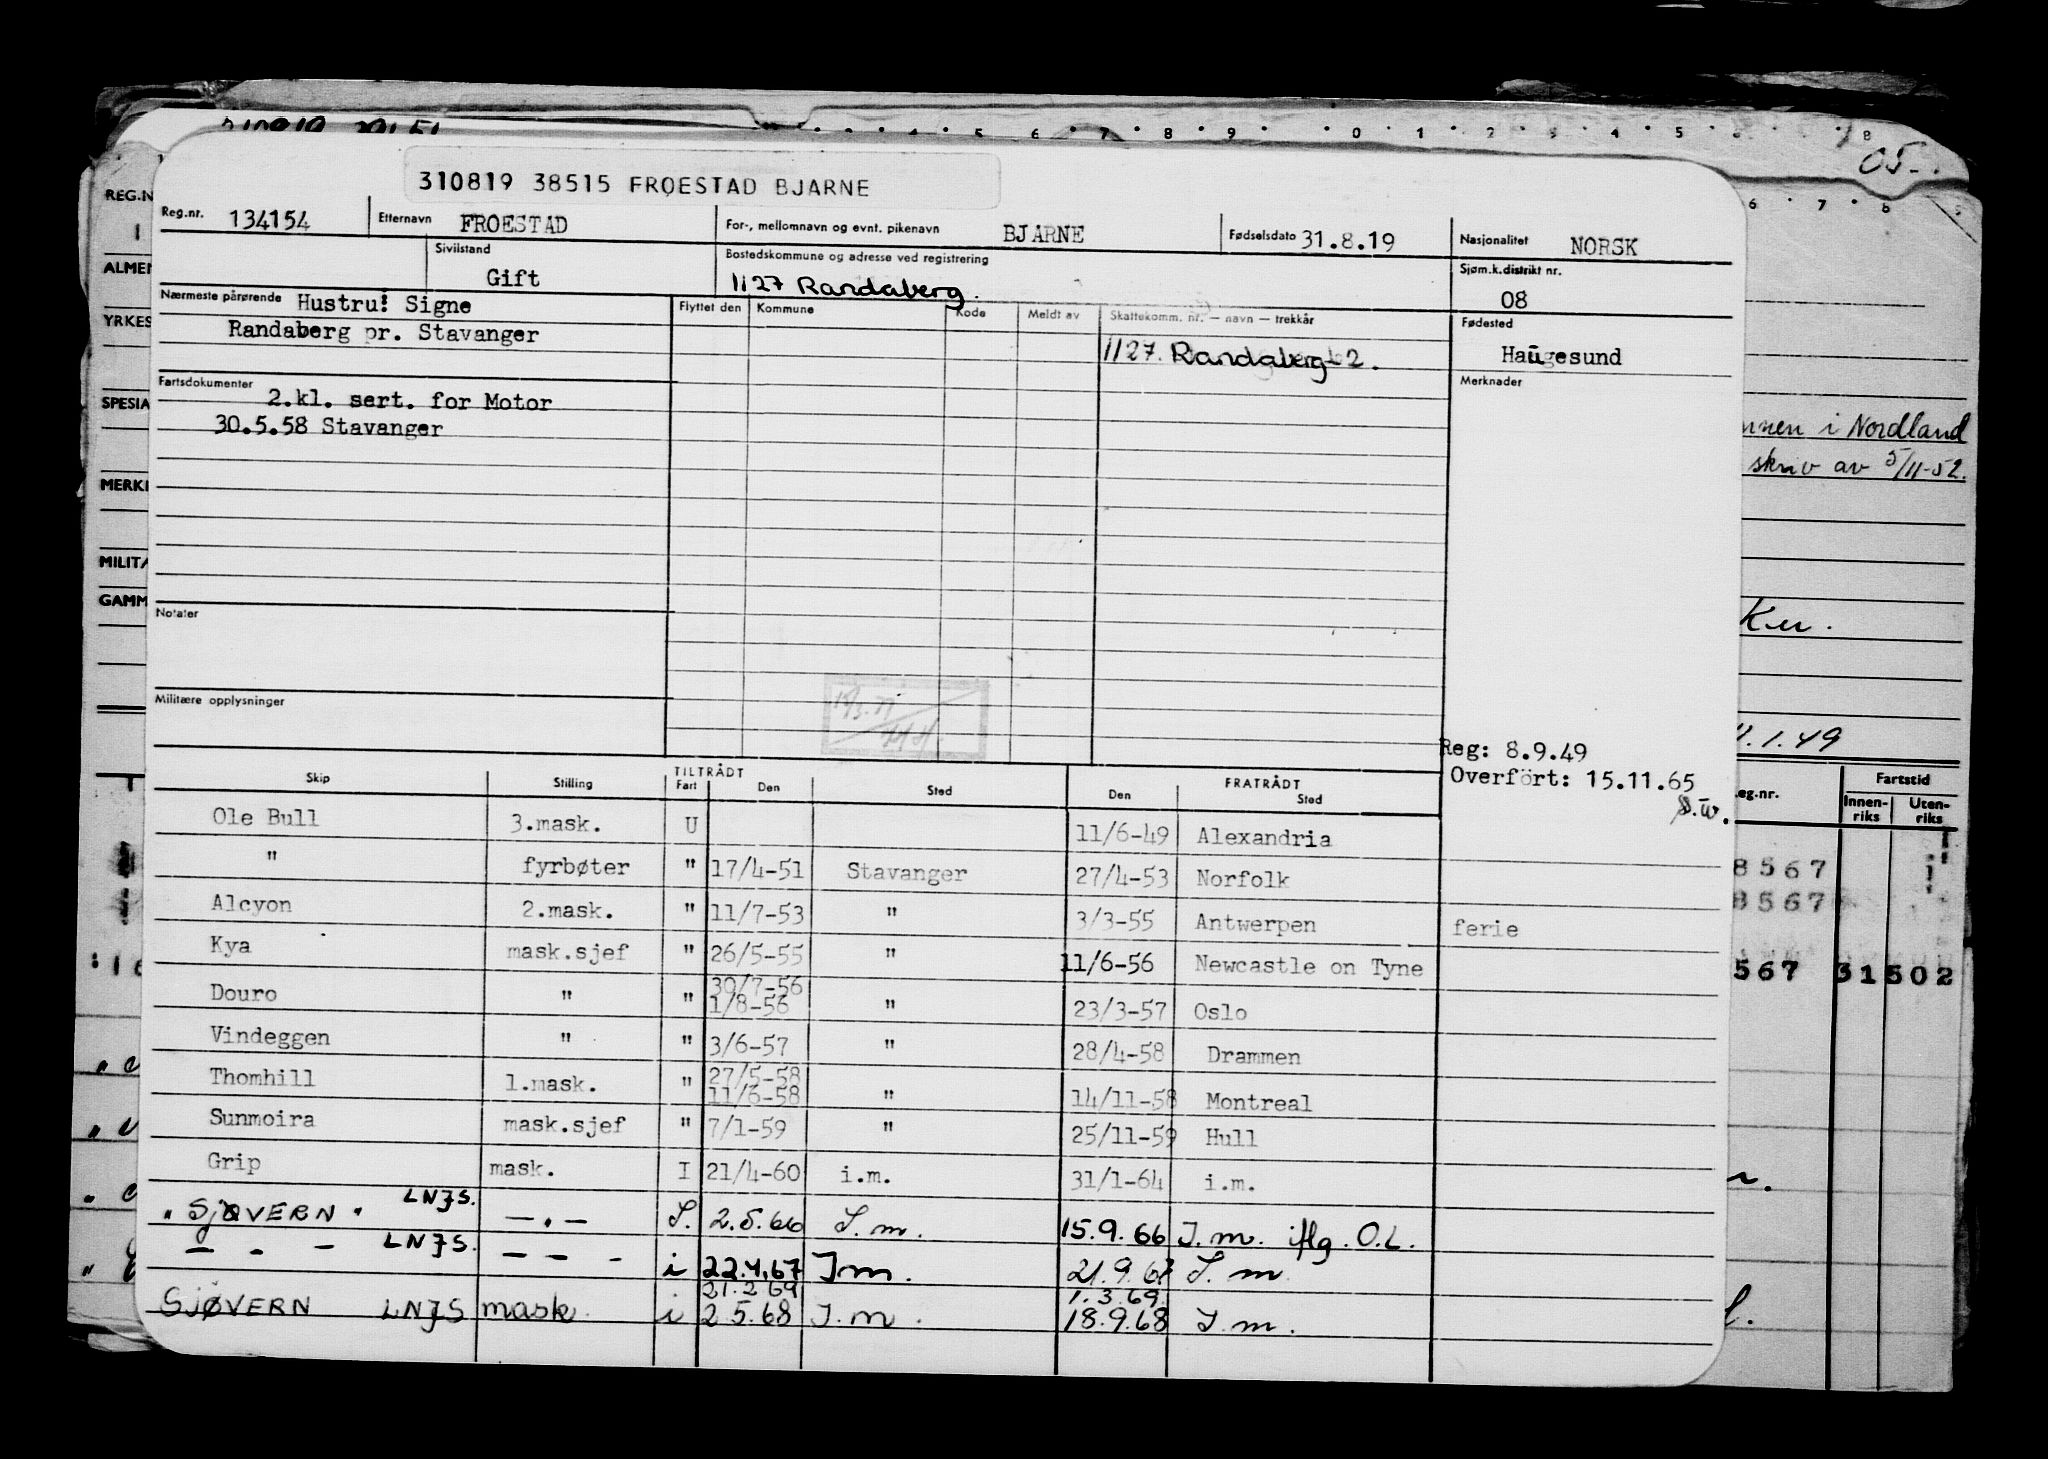 4 5 6 7 8 9 0 1 2 3 4 5 6 8
05-
310819 38515 FROESTAD BJARNE
6 7 8 9
REG.N
Reg.nr. 134154 Etternavn FROESTAD For-, mellomnavn og evnt. pikenavn BJARNE Fødselsdato 31.8.19 Nasjonalitet NORSK
Sivilstand Gift Bostedskommune og adresse ved registrering 1127 Randaberg. Sjøm.k.distrikt nr. 08
ALMEN
Nærmeste pårørende Hustru: Signe Flyttet den Kommune Kode Meldt av Skattekomm. nr. — navn — trekkår Fødested
YRKES
Randaberg pr. Stavanger 1127. Randaberg 2. Haugesund
Fartsdokumenter Merknader
2.kl. sert. for Motor
SPESIA
30.5.58 Stavanger
nnen i Nordland
skriv av 5/11-52.
MERK
MILITÆ
GAMM
Notater
Militære opplysninger
1.49
Reg: 8.9.49
Overfört: 15.11.65
S.W.
eg.nr. Fartstid
Innen-riks Uten-riks
Skip Stilling TILTRÅDT Fart Den Sted FRATRÅDT Den Sted
Ole Bull 3.mask. U 11/6-49 Alexandria
" fyrbøter " 17/4-51 Stavanger 27/4-53 Norfolk
8567
Alcyon 2.mask. " 11/7-53 " 3/3-55 Antwerpen ferie
8567
Kya mask.sjef " 26/5-55 " 11/6-56 Newcastle on Tyne
567 31502
30/7-56
Douro " " 1/8-56 " 23/3-57 Oslo
Vindeggen " " 3/6-57 " 28/4-58 Drammen
27/5-58
Thomhill 1.mask. " 11/6-58 " 14/11-58 Montreal
Sunmoira mask.sjef " 7/1-59 " 25/11-59 Hull
Grip mask. I 21/4-60 i.m. 31/1-64 i.m.
"SJØVERN" LNJS. — " — I. 2.5.66 I.m. 15.9.66 I.m. iflg. O.L.
— - — LNJS. — — - i 22.4.67 Im. 21.9.67 I.m.
21.2 69 1.3.69.
SJØVERN LNJS mask. i 2 5.68 I.m. 18.9.68 I.m.